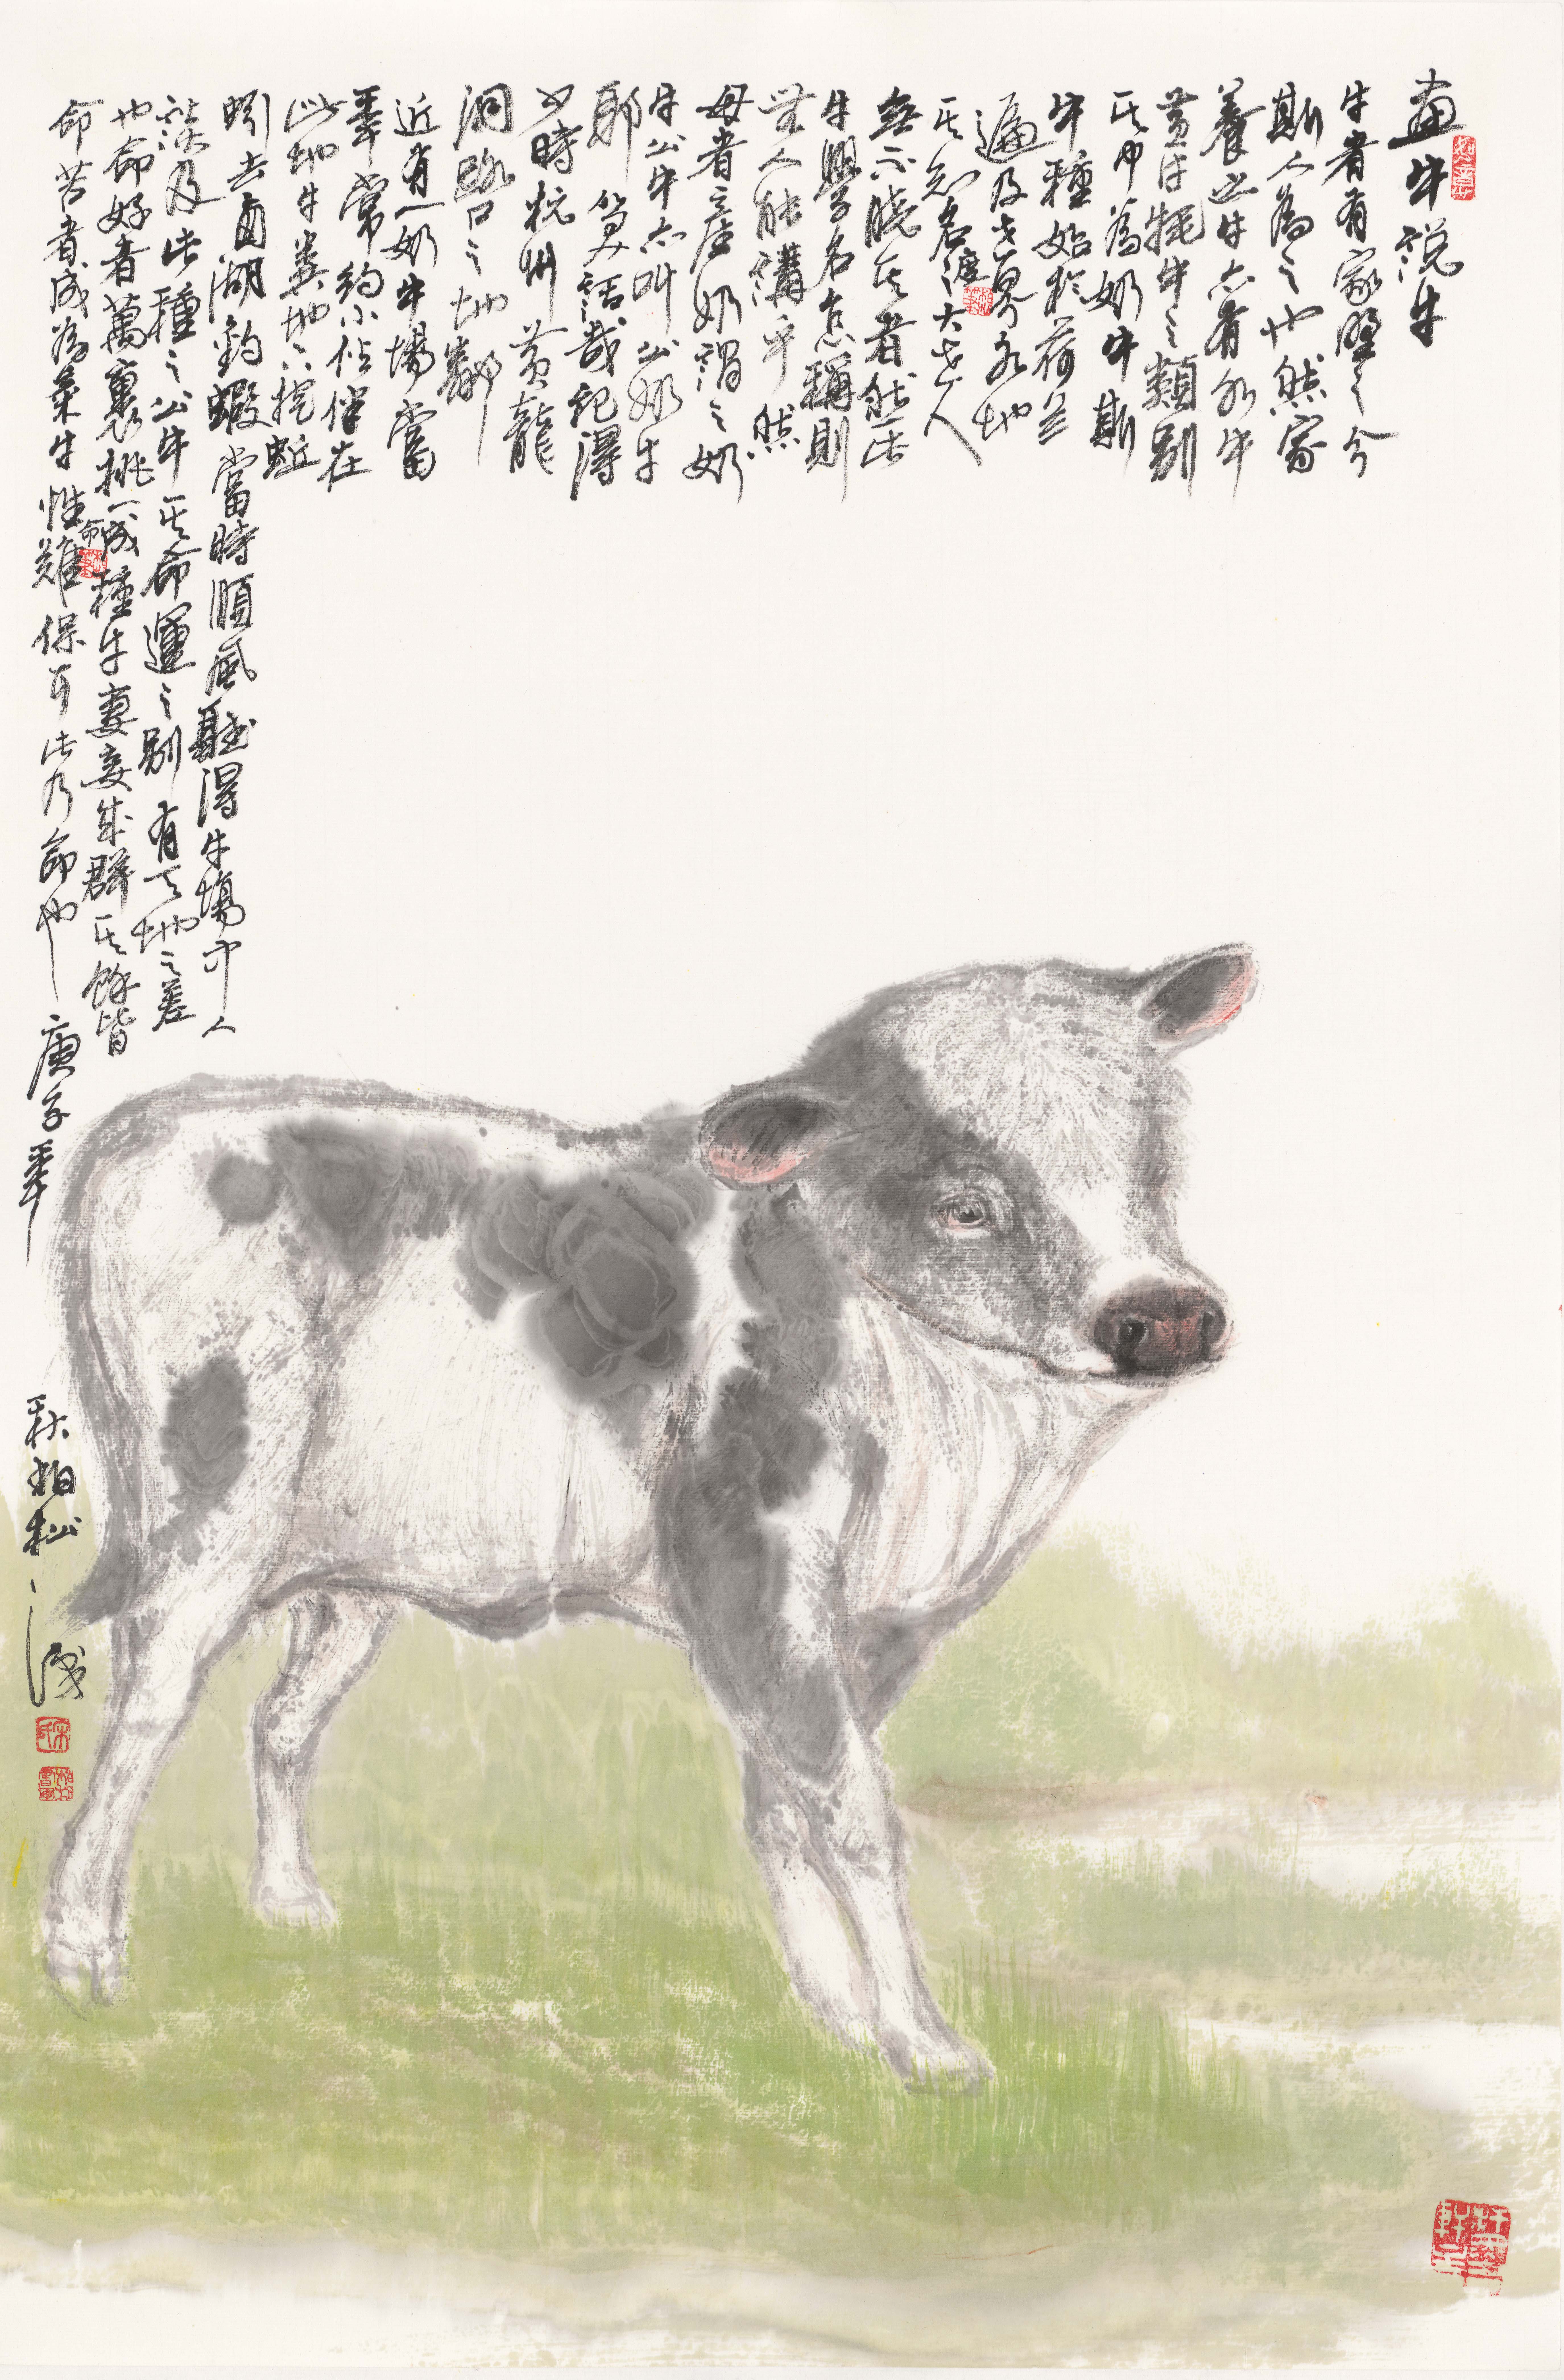 畫牛説牛
牛者有家墅之分
斯人為之也然家
養之牛亦有水牛
黃牛牦牛之類別
其中為奶牛斯
牛種始於荷蘭
遍及世界各地
其知名度之大世人
無不曉其者然此
牛學名怎稱則
無人能講乎然
母者產奶謂之奶
牛公牛亦叫公奶牛
耶笑話哉記得
少時杭州黃龍
洞路口之地鄰
近有一奶牛場當
年常約小伙伴在
此地牛糞地下挖蚯
蚓去西湖釣蝦當時順風聽得牛場中人
談及此種之公牛其命運之別有天地之差
也命好者萬裏挑一成種牛妻妾成群其餘皆
命苦者成為菜牛性命難保可此乃命也庚子年
秋柏松